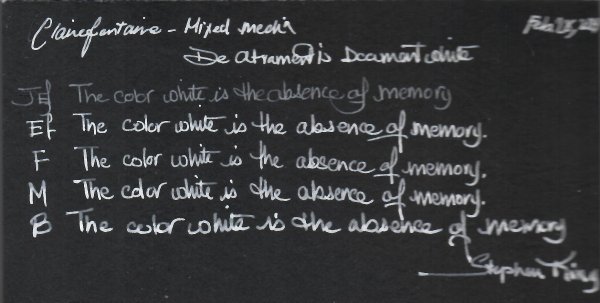 Clairefontaine - Mixed media
De Atramentis Document white
Jef The color white is the absence of memory
Ef The color white is the absence of memory.
F The color white is the absence of memory.
M The color white is the absence of memory.
B The color white is the absence of memory
Stephen King